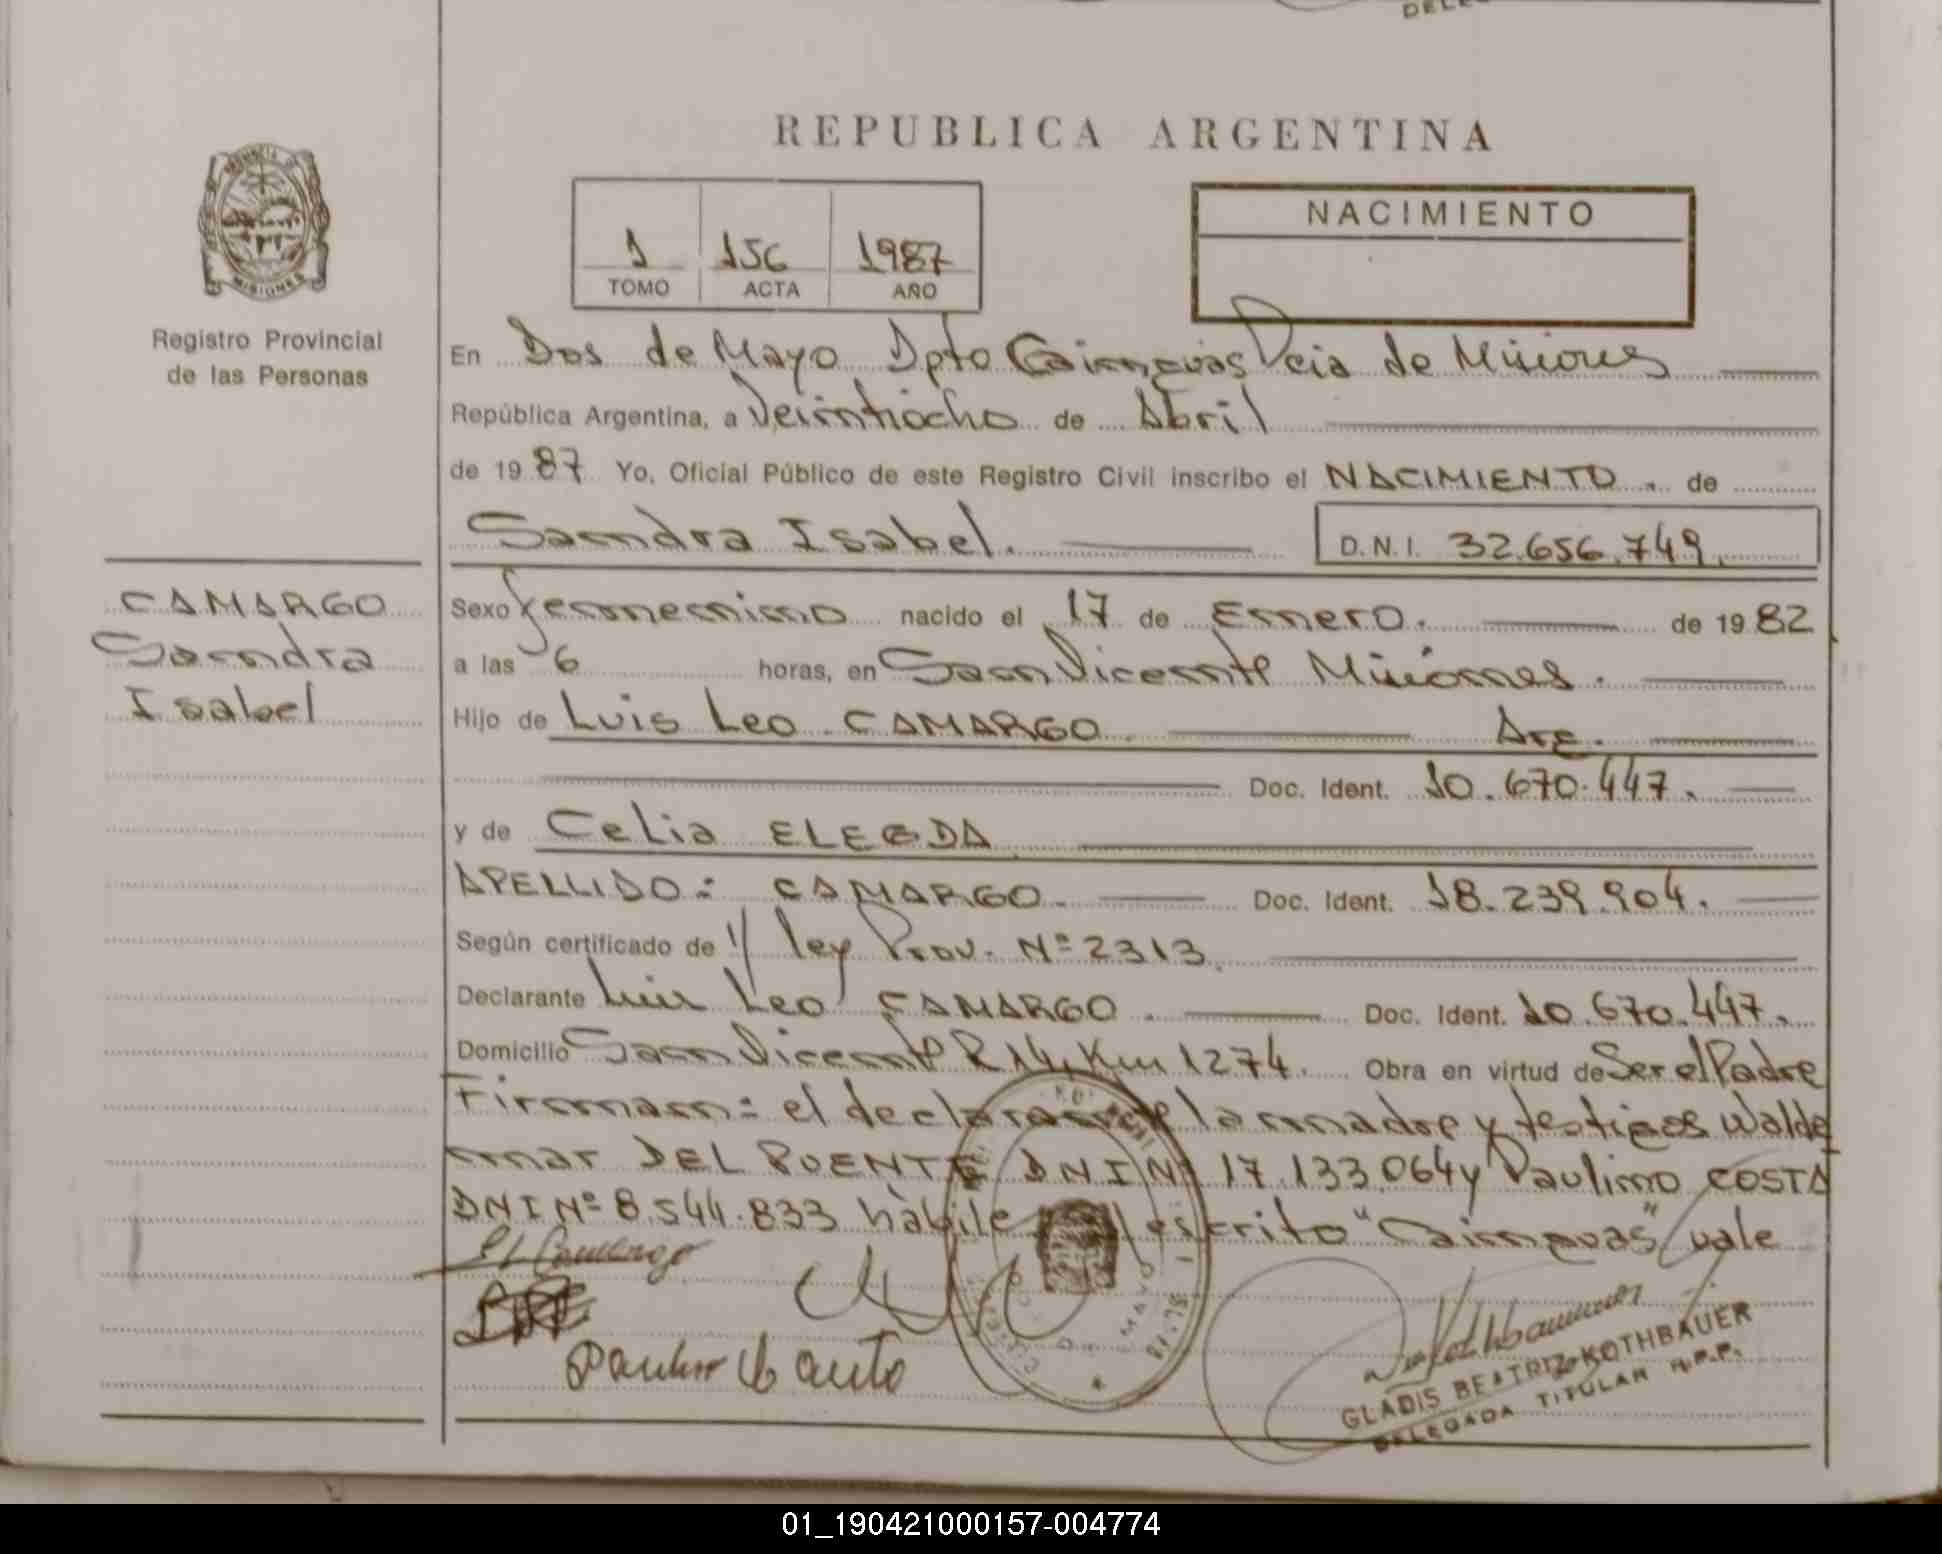 REPUBLICA ARGENTINA
PROVINCIA DE MISIONES
Registro Provincial
de las Personas
1 156 1987
TOMO ACTA AÑO
NACIMIENTO
En Dos de Mayo Dpto Cainguas Pcia de Misiones
República Argentina, a Veintiocho de Abril
de 19 87 Yo, Oficial Público de este Registro Civil inscribo el NACIMIENTO. de
Sandra Isabel.
D.N.I. 32.656.749.
CAMARGO
Sandra
Isabel
Sexo femenino nacido el 17 de Enero. de 19 82
a las 6 horas, en San Vicente Misiones.
Hijo de Luis Leo CAMARGO Arg.
Doc. Ident. 10.670.447.
y de Celia
APELLIDO: CAMARGO. Doc. Ident. 18.239.904.
Según certificado de ley Prov. Nº 2313.
Declarante Luis Leo CAMARGO. Doc. Ident. 10.670.447.
Domicilio San Vicente R 14, Km 1274. Obra en virtud de Ser el Padre
Firman: el declarante la madre y testigos Walde
mar DEL PUENTE DNI Nº 17.133.064 y Paulino COSTA
DNI Nº 8.544.833 escrito "Cainguas" vale
GLADIS BEATRIZ KOTHBAUER
DELEGADA TITULAR R.P.P.
01_190421000157-004774